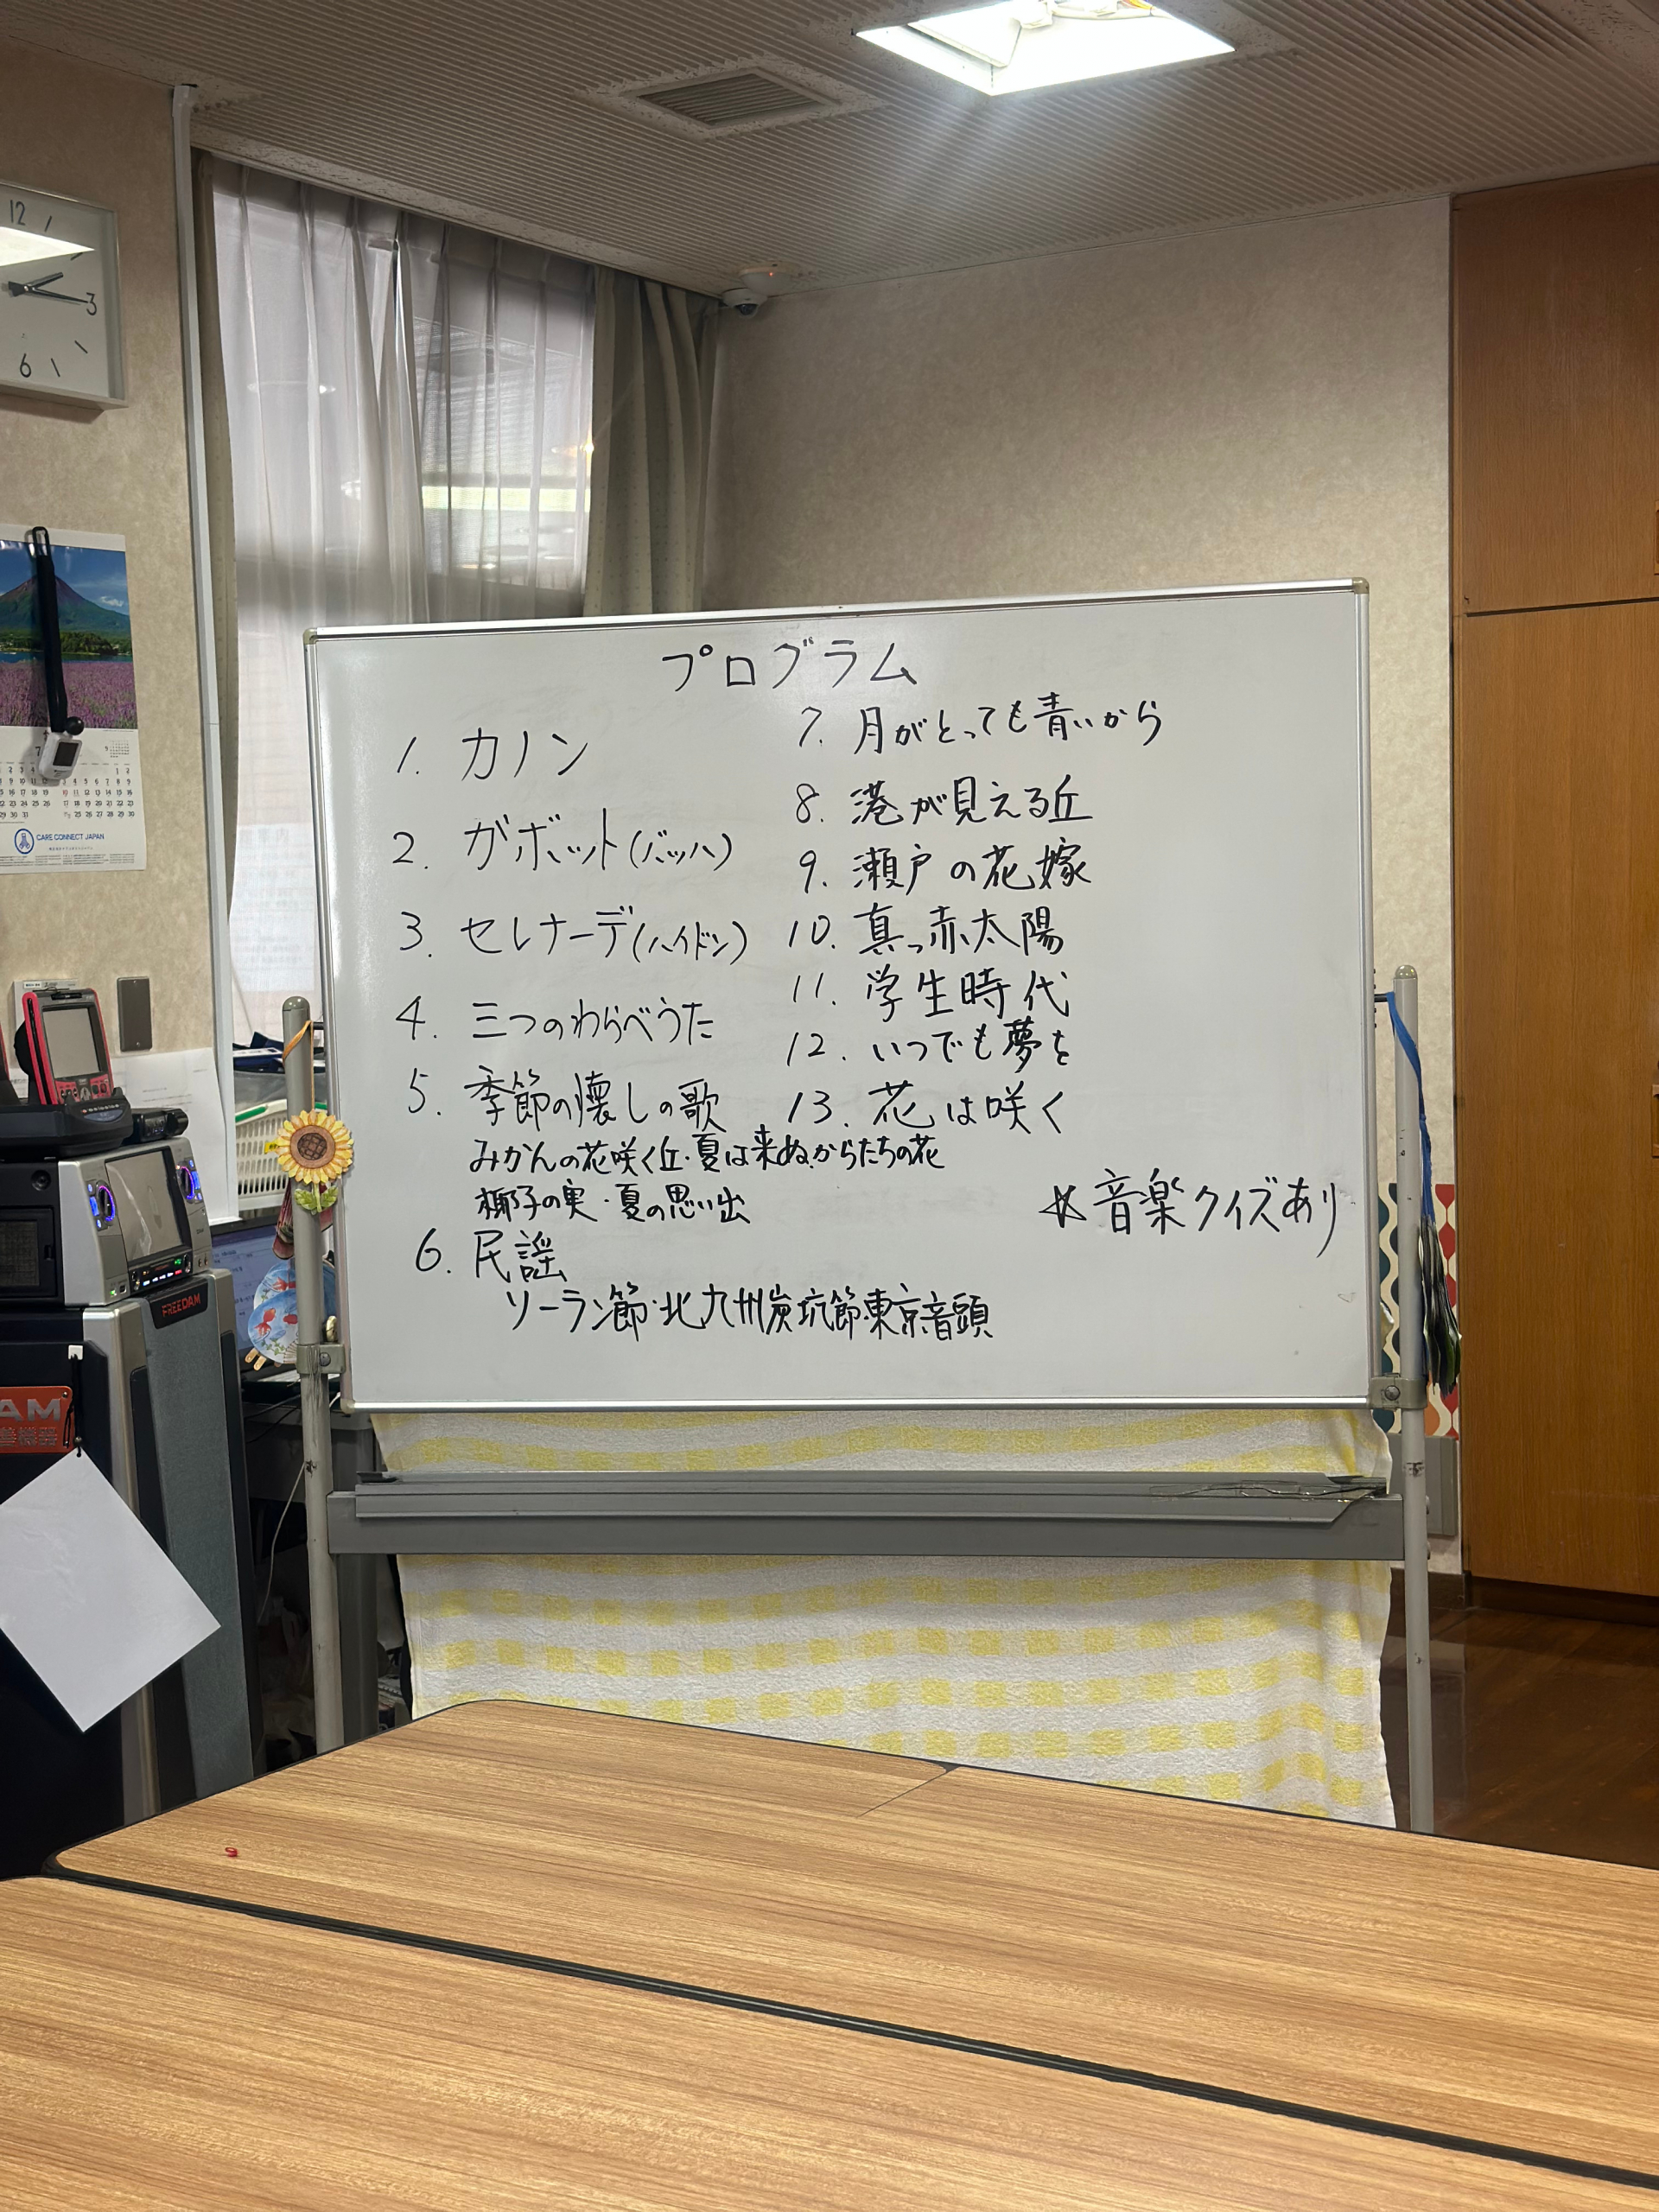 プログラム
1. カノン
2. ガボット(バッハ)
3. セレナーデ(ハイドン)
4. 三つのわらべうた
5. 季節の懐しの歌
みかんの花咲く丘・夏は来ぬ・からたちの花
椰子の実・夏の思い出
6. 民謡
ソーラン節・北九州炭坑節・東京音頭
7. 月がとっても青いから
8. 港が見える丘
9. 瀬戸の花嫁
10. 真っ赤太陽
11. 学生時代
12. いつでも夢を
13. 花は咲く
☆音楽クイズあり
12
3
6
7
CARE CONNECT JAPAN
FREEDAM
AM